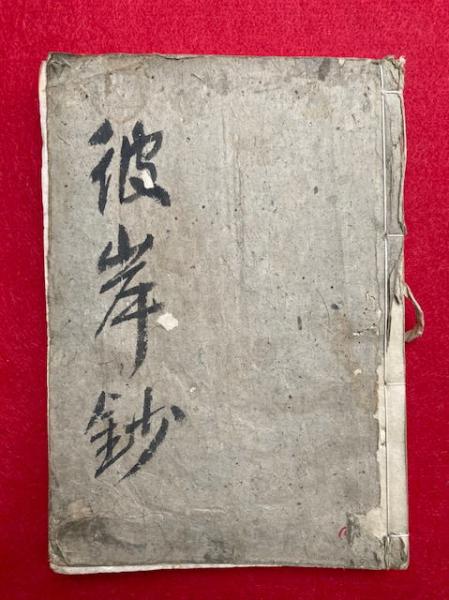 彼岸鈔